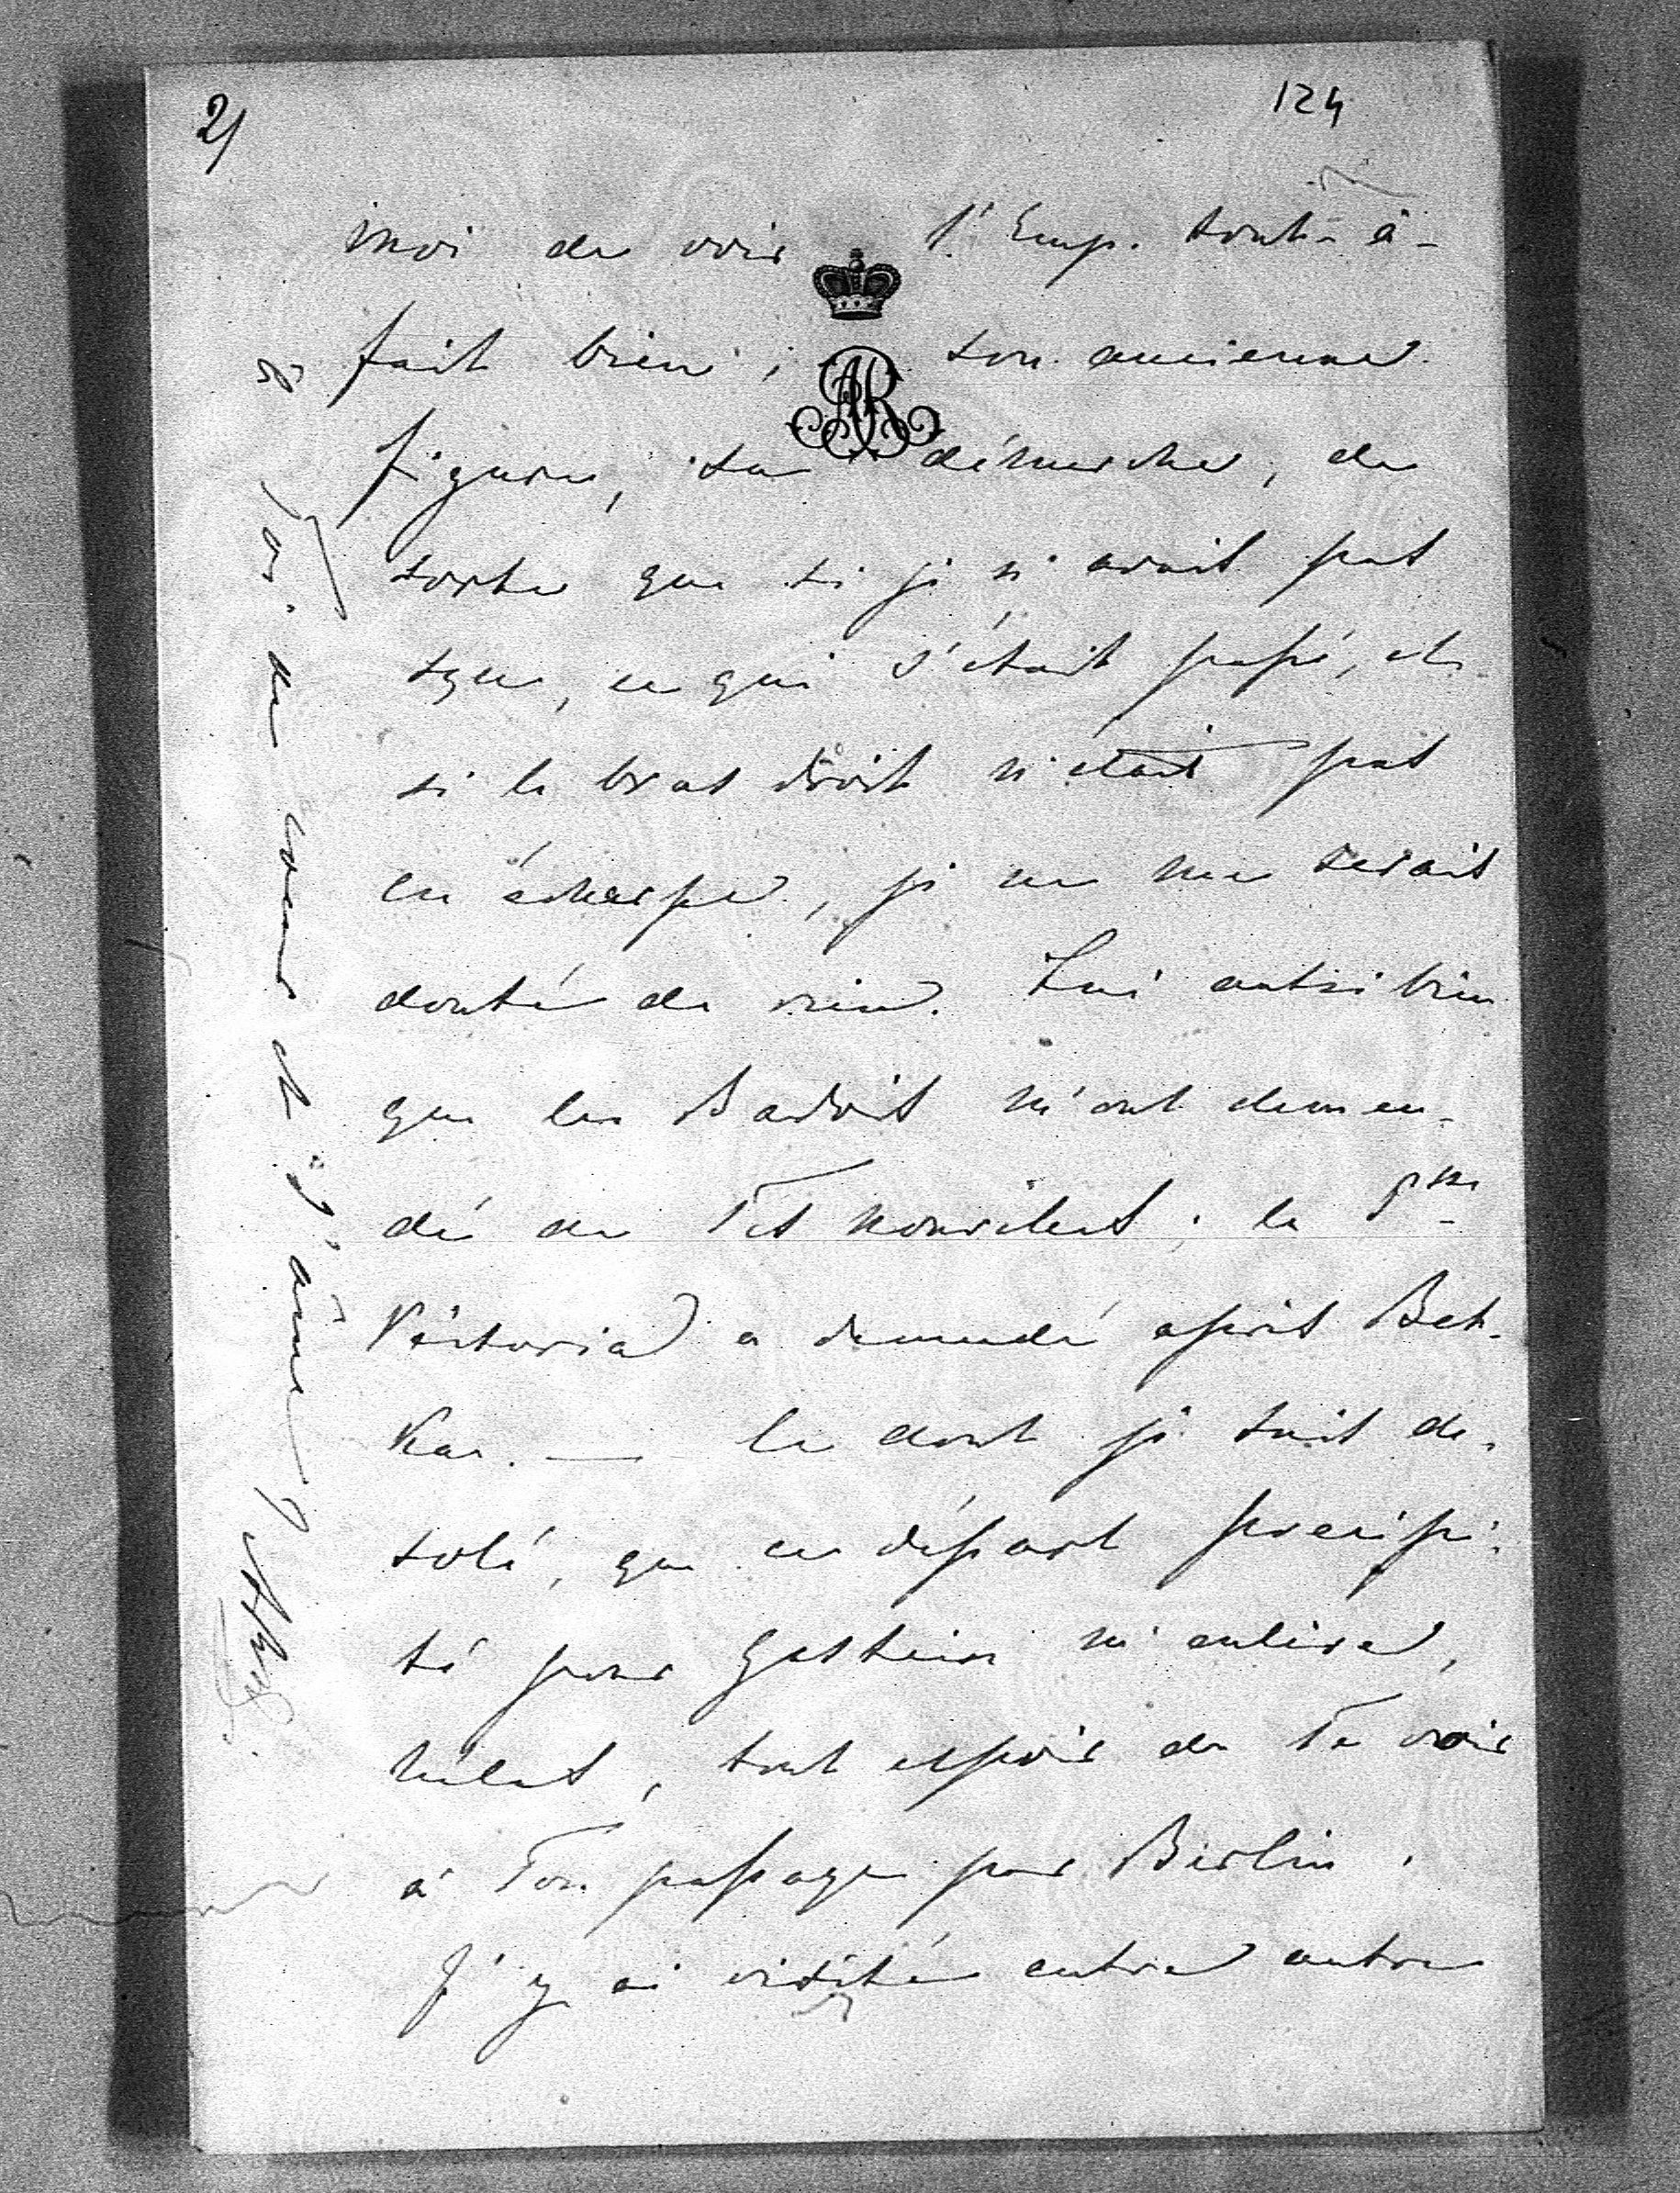 2/
124
moi de voir l'Emp. tout-à-
fait bien; son ancienne
figure, sa démarche, de
sorte que si je n'avais pas
sçu, ce qui s'était passé, et
si le bras droit n'était pas
en écharpe, je ne me serais
douté de rien. Lui aussi bien
que les Badois m'ont deman-
dé de Tes nouvelles; la Psse
Victoria a demandé après Bek-
ker. — Ce dont je suis dé-
solé, que ce départ precipi-
té pour Gastein m'enlève,
hélas, tout espoir de Te voir
à Ton passage par Berlin.
J'y ai visité entre autre
à Toi de coeur et d'âme